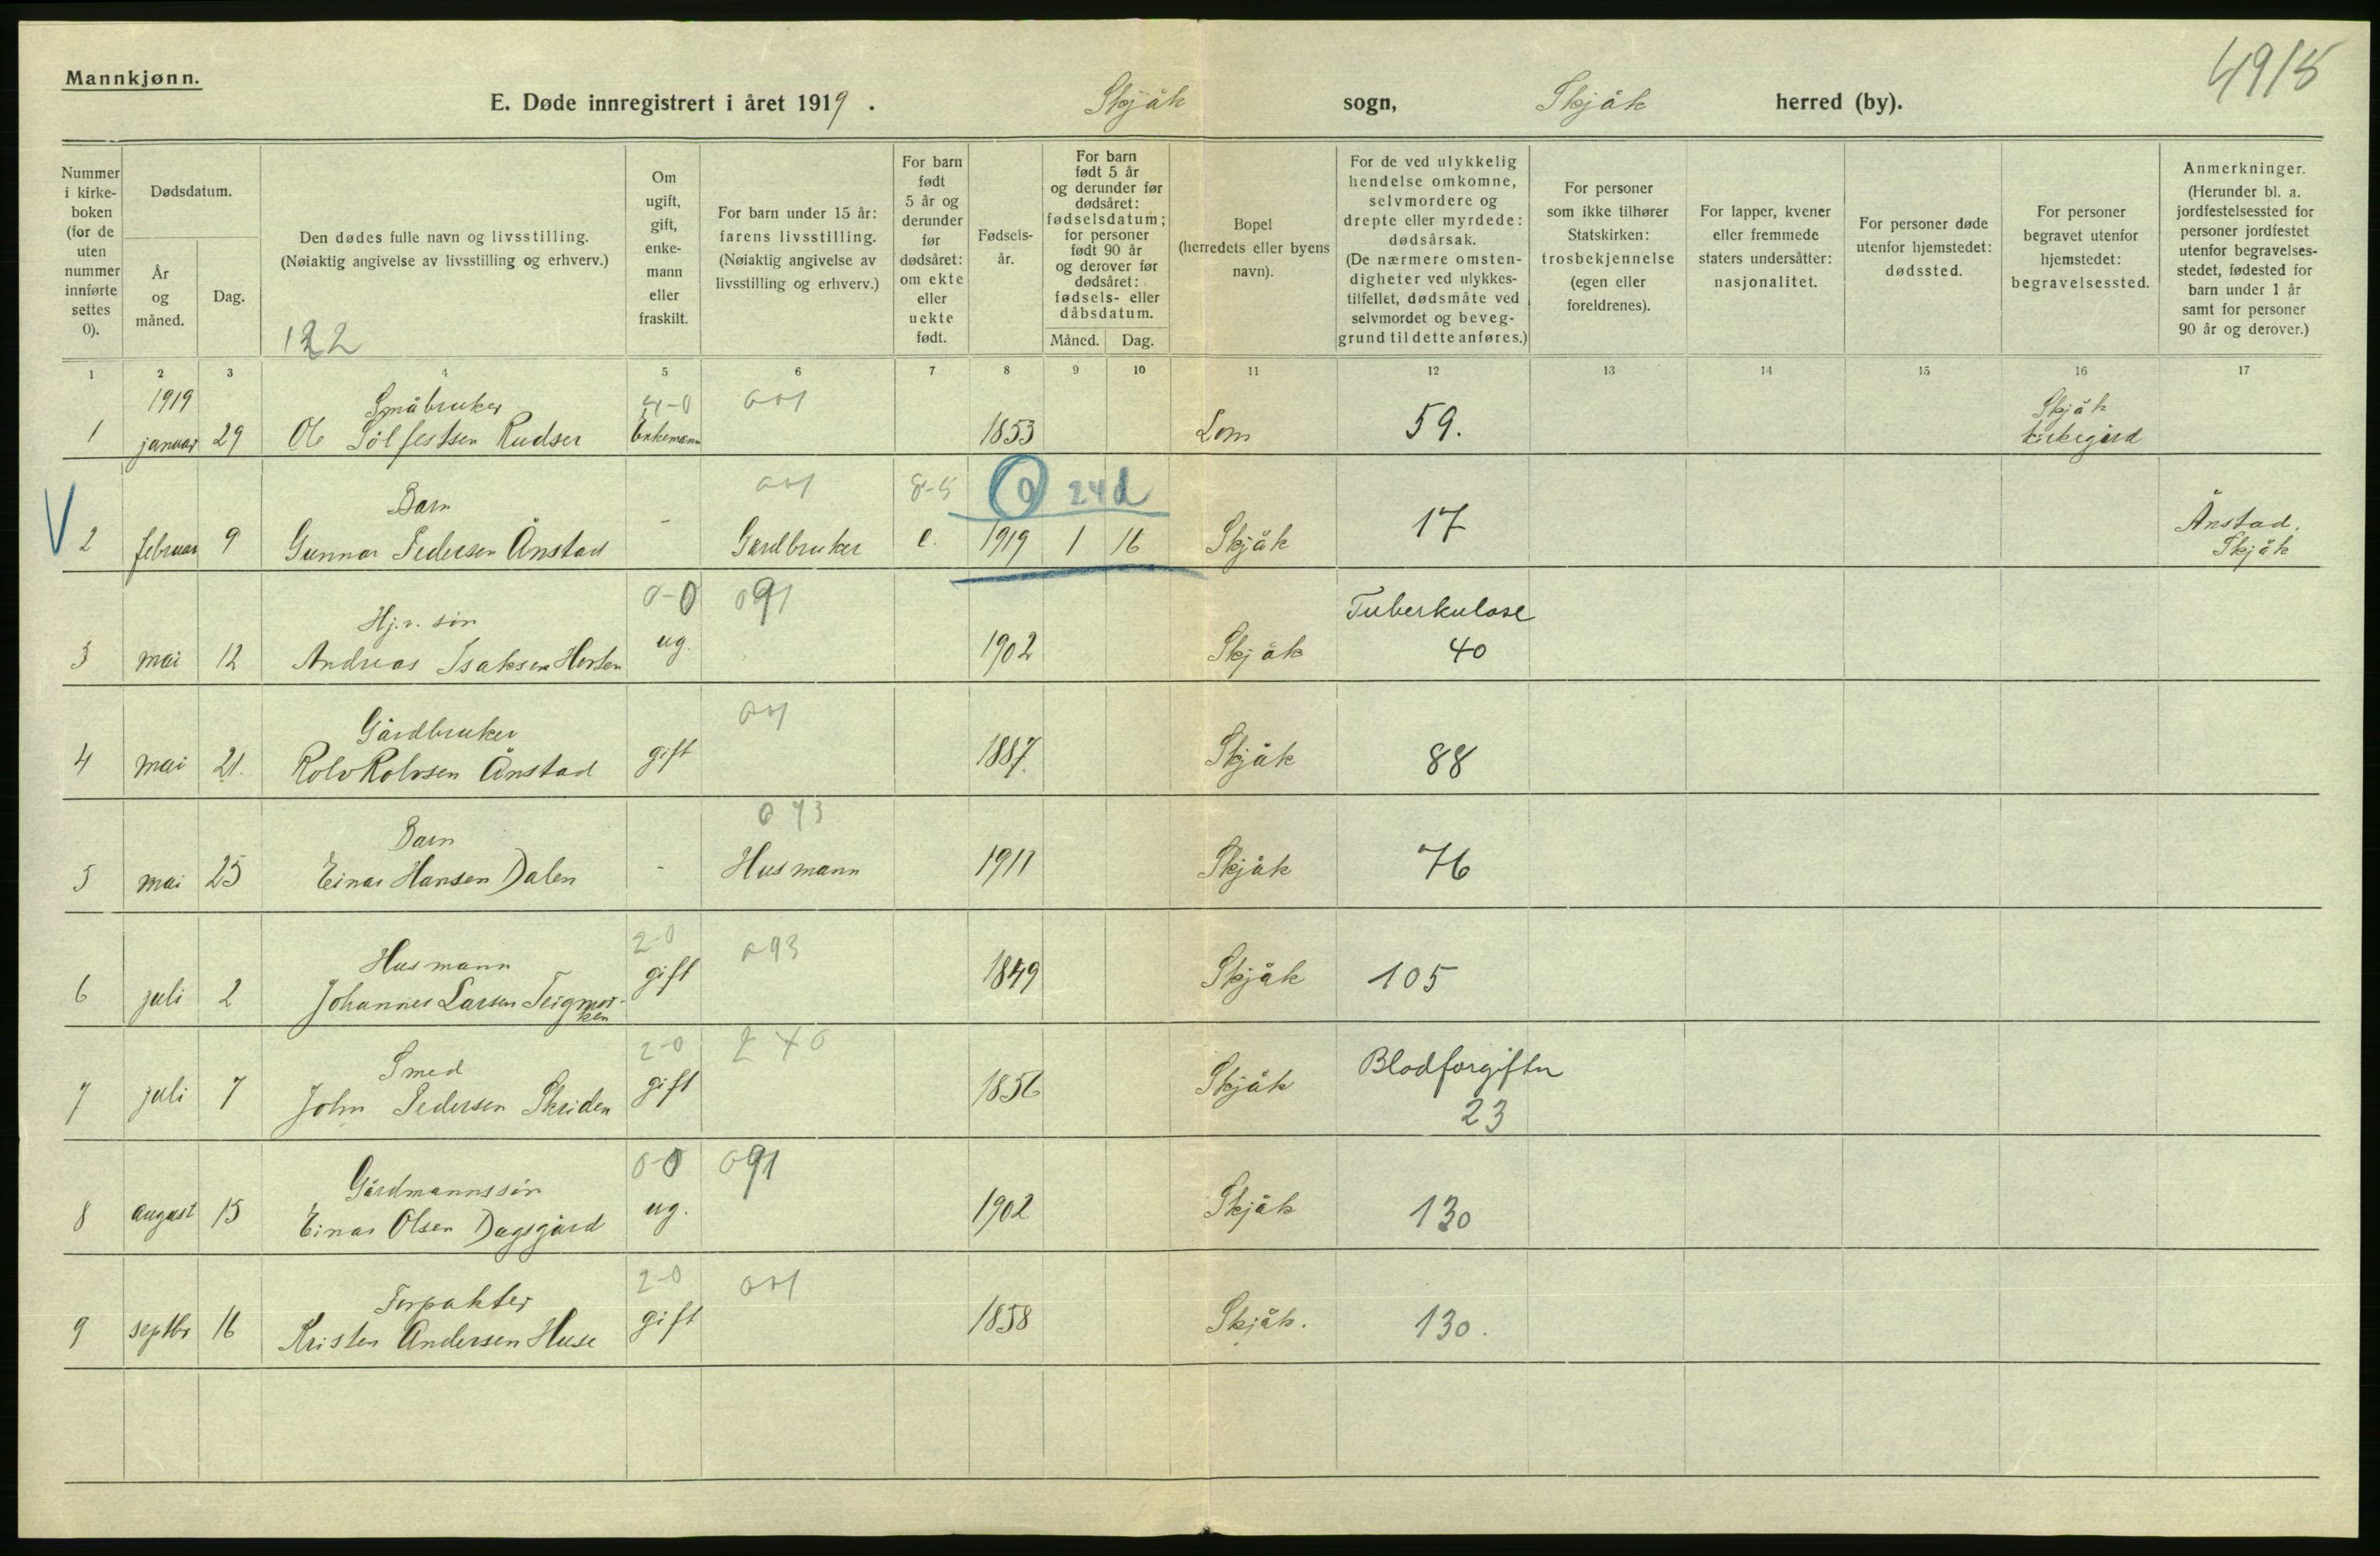 4915
Mannkjønn.
E. Døde innregistrert i året 1919 . Skjåk sogn, Skjåk herred (by).
Nummer i kirke-boken (for de uten nummer innførte settes 0).
Dødsdatum.
År og måned.
Dag.
Den dødes fulle navn og livsstilling.
(Nøiaktig angivelse av livsstilling og erhverv.)
122
Om ugift, gift, enke-mann eller fraskilt.
For barn under 15 år: farens livsstilling.
(Nøiaktig angivelse av livsstilling og erhverv.)
For barn født 5 år og derunder før dødsåret: om ekte eller uekte født.
Fødsels-år.
For barn født 5 år og derunder før dødsåret: fødselsdatum; for personer født 90 år og derover før dødsåret: fødsels- eller dåbsdatum.
Måned. Dag.
Bopel (herredets eller byens navn).
For de ved ulykkelig hendelse omkomne, selvmordere og drepte eller myrdede: dødsårsak.
(De nærmere omsten-digheter ved ulykkes-tilfellet, dødsmåte ved selvmordet og beveg-grund til dette anføres.)
For personer som ikke tilhører Statskirken: trosbekjennelse (egen eller foreldrenes).
For lapper, kvener eller fremmede staters undersåtter: nasjonalitet.
For personer døde utenfor hjemstedet: dødssted.
For personer begravet utenfor hjemstedet: begravelsessted.
Anmerkninger.
(Herunder bl. a. jordfestelsessted for personer jordfestet utenfor begravelses-stedet, fødested for barn under 1 år samt for personer 90 år og derover.)
1 2 3 4 5 6 7 8 9 10 11 12 13 14 15 16 17
1919 Småbruker 4-0 Skjåk
1 januar 29 Ole Sølfestsen Rudser Enkemann 1853 Lom 59. kirkegård
Barn 8-5 0 24 d Ånstad.
2 februar 9 Gunnar Pedersen Ånstad - Gardbruker e. 1919 1 16 Skjåk 17 Skjåk
Hj.v. søn 0-0 091 Tuberkulose
3 mai 12 Andreas Isaksen ug. 1902 Skjåk 40
Gårdbruker
4 mai 21. Rolv Rolvsen Ånstad gift 1887 Skjåk 88
Barn 093
5 mai 25 Einar Hansen Dalen - Husmann 1911 Skjåk 76
Husmann 2-0 093
6 juli 2 Johannes Larsen Teigmor-ken gift 1849 Skjåk 105
Smed 2-0 Blodforgiftn
7 juli 7 John Pedersen Skriden gift 1856 Skjåk 23
Gårdmannssøn 0-0 091
8 august 15 Einar Olsen Dagsgård ug. 1902 Skjåk 130
Forpakter 2-0
9 septbr 16 Kristen Andersen Huse gift 1858 Skjåk. 130.